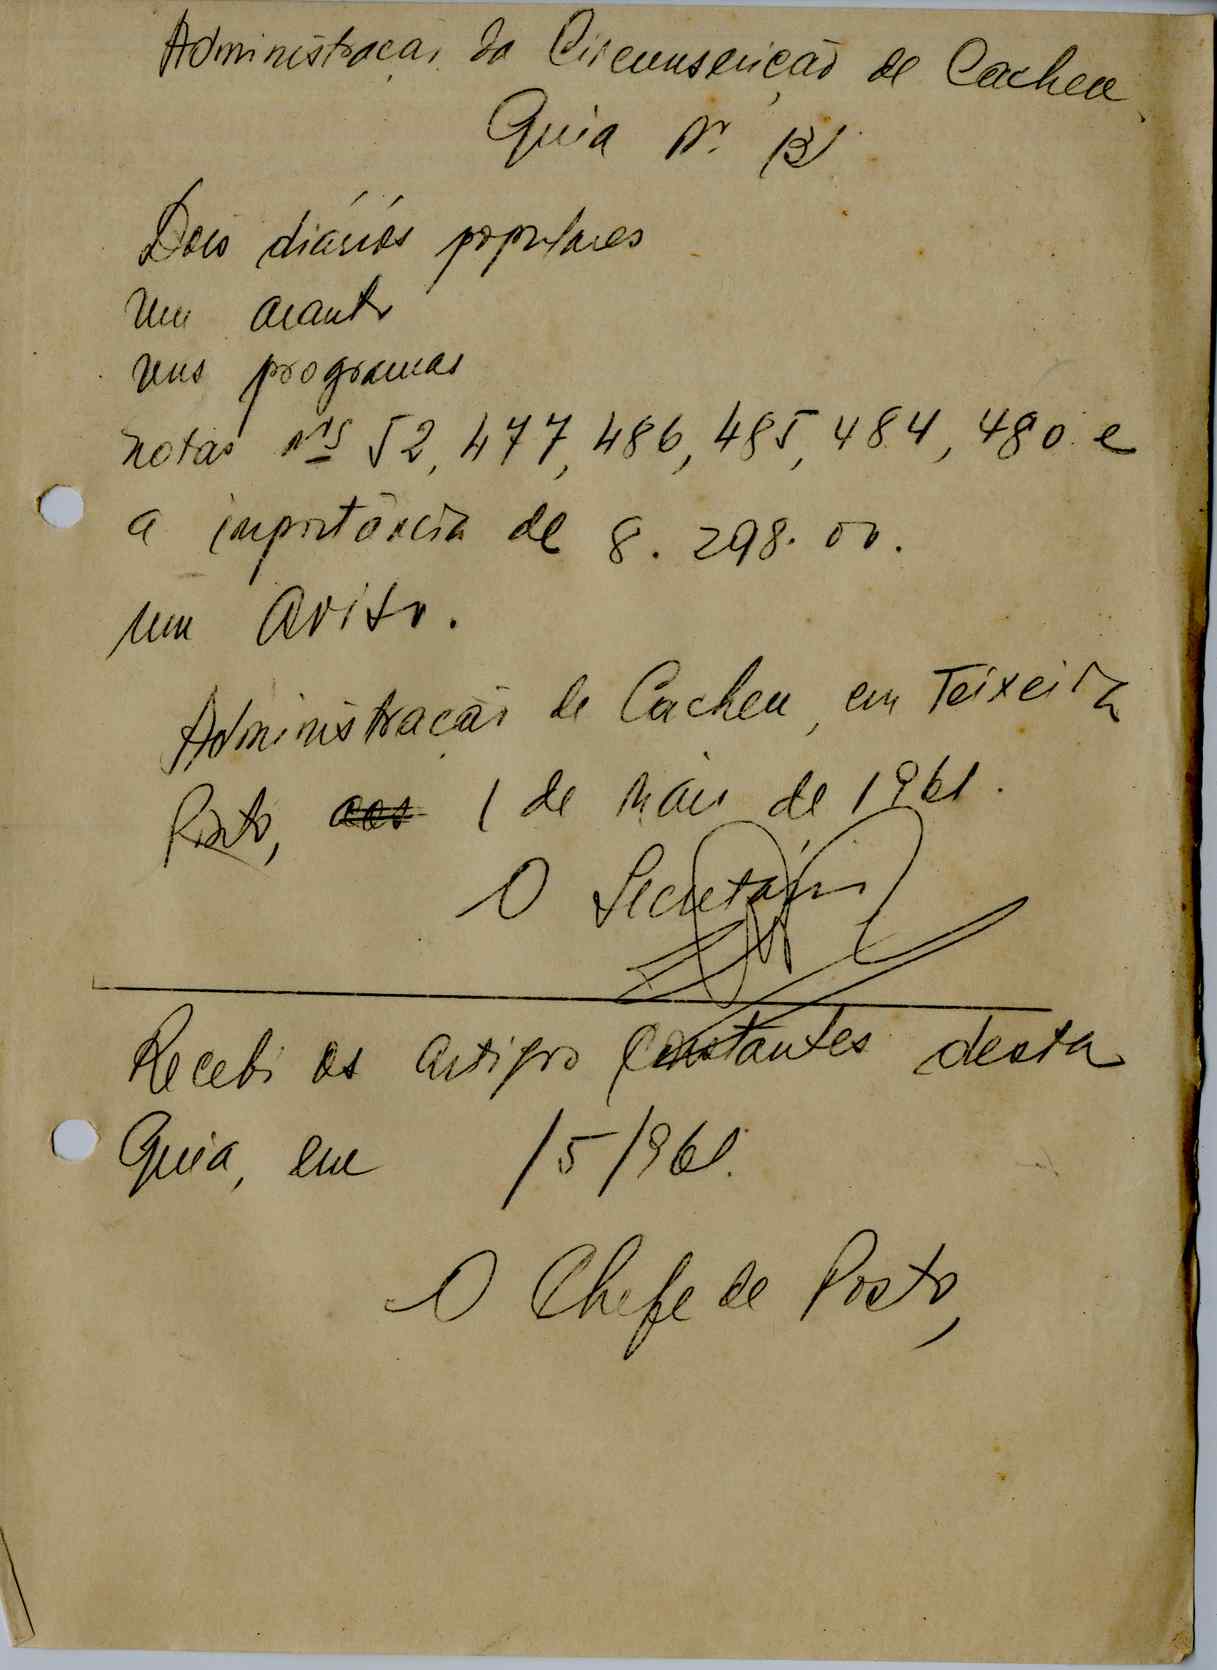 Administração da Circunscrição de Cacheu
Guia Nº 13
Dois diários populares
um
uns programas
notas nºs 52, 477, 486, 485, 484, 480 e
a importância de 8.298.00.
um aviso.
Administração de Cacheu, em Teixeira
Pinto, aos 1 de Maio de 1961.
O Secretário
Recebi os artigos constantes desta
Guia, em /5/1961.
O Chefe de Posto,